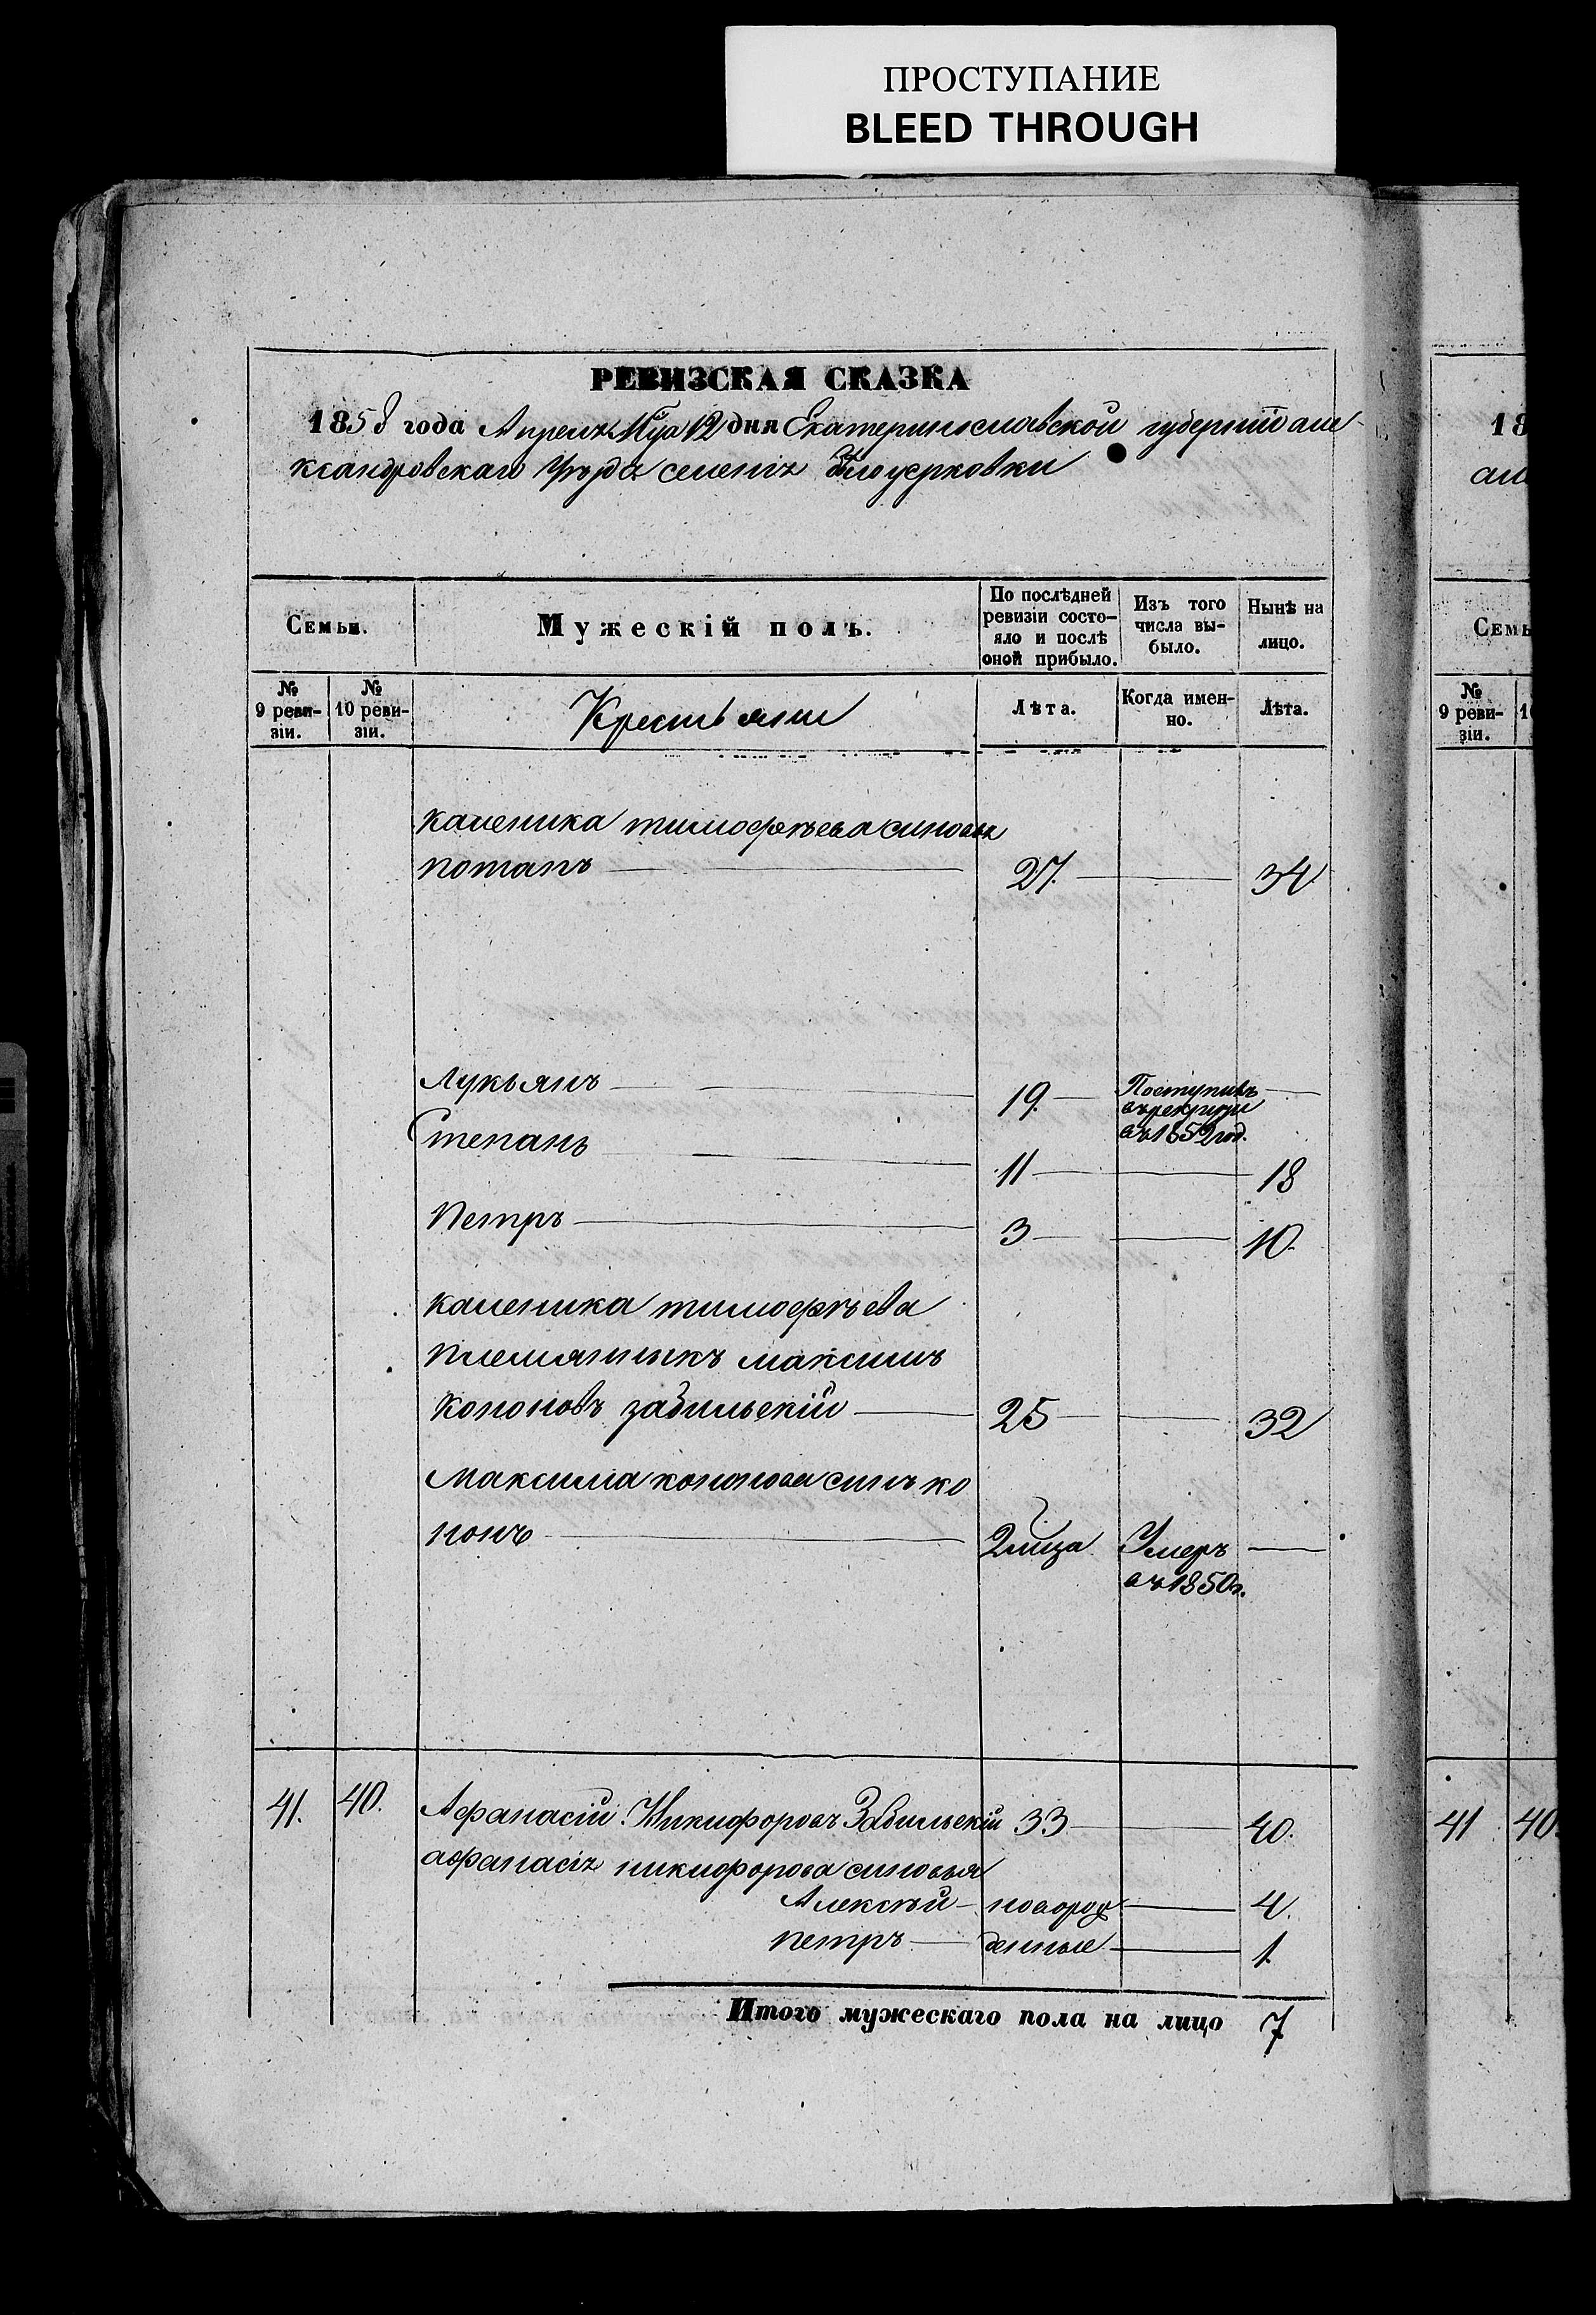 ПРОСТУПАНИЕ
BLEED THROUGH
РЕВИЗСКАЯ СКАЗКА
1858 года Апреля Мца 12 дня Екатеринославской губерніи але-
ксандровскаго уѣзда селенія Бѣлоцерковки
Семьи.
Мужескій полъ.
По послѣдней ревизіи состо-яло и послѣ оной прибыло.
Изъ того числа вы-было.
Нынѣ на лицо.
№ 9 реви-зіи.
№ 10 реви-зіи.
Крестьяни
Лѣта.
Когда имен-но.
Лѣта.
каленика тимофѣева синовья
потапъ 27. 34
Лукьянъ 19. Поступилъ
въ рекруты
въ 1852 год.
Степанъ 11 18
Петръ 3 10.
каленика тимофѣева
племянныкъ максимъ
кононовъ забильскій 25 32
Максима кононова синъ ко
нонъ 2 мца Умеръ
въ 1850 г.
41. 40. Афанасій Никифоровъ Забильскій 33 40.
афанасія никифорова синовья
Алексѣй новорож 4.
петръ денные 1.
Итого мужескаго пола на лицо 7
18
але
Семь
№ 9 реви-зіи.
10
41 40.